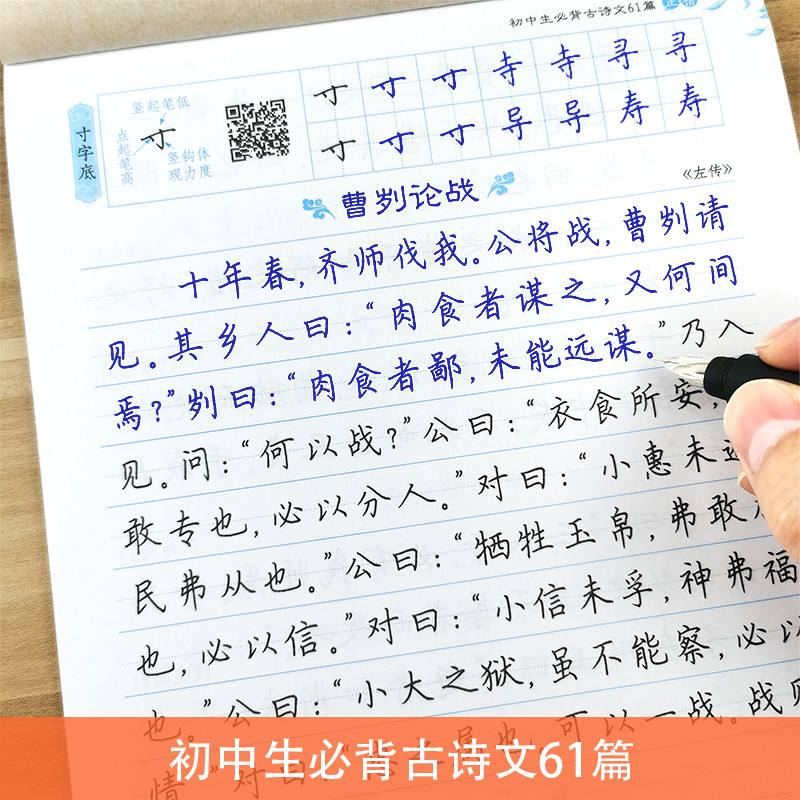 初中生必背古诗文61篇 正楷
寸字底
竖起笔低
点起笔高
寸
竖钩体现力度
寸 寸 寸 寺 寺 寻 寻
寸 寸 寸 导 导 寿 寿
曹刿论战
《左传》
十年春，齐师伐我。公将战，曹刿请
见。其乡人曰：“肉食者谋之，又何间
焉？”刿曰：“肉食者鄙，未能远谋。”乃入
见。问：“何以战？”公曰：“衣食所安，
敢专也，必以分人。”对曰：“小惠未
民弗从也。”公曰：“牺牲玉帛，弗敢
也，必以信。”对曰：“小信未孚，神弗福
也。”公曰：“小大之狱，虽不能察，必以
情。”对曰：“ 之属也，可以一战。战
初中生必背古诗文61篇